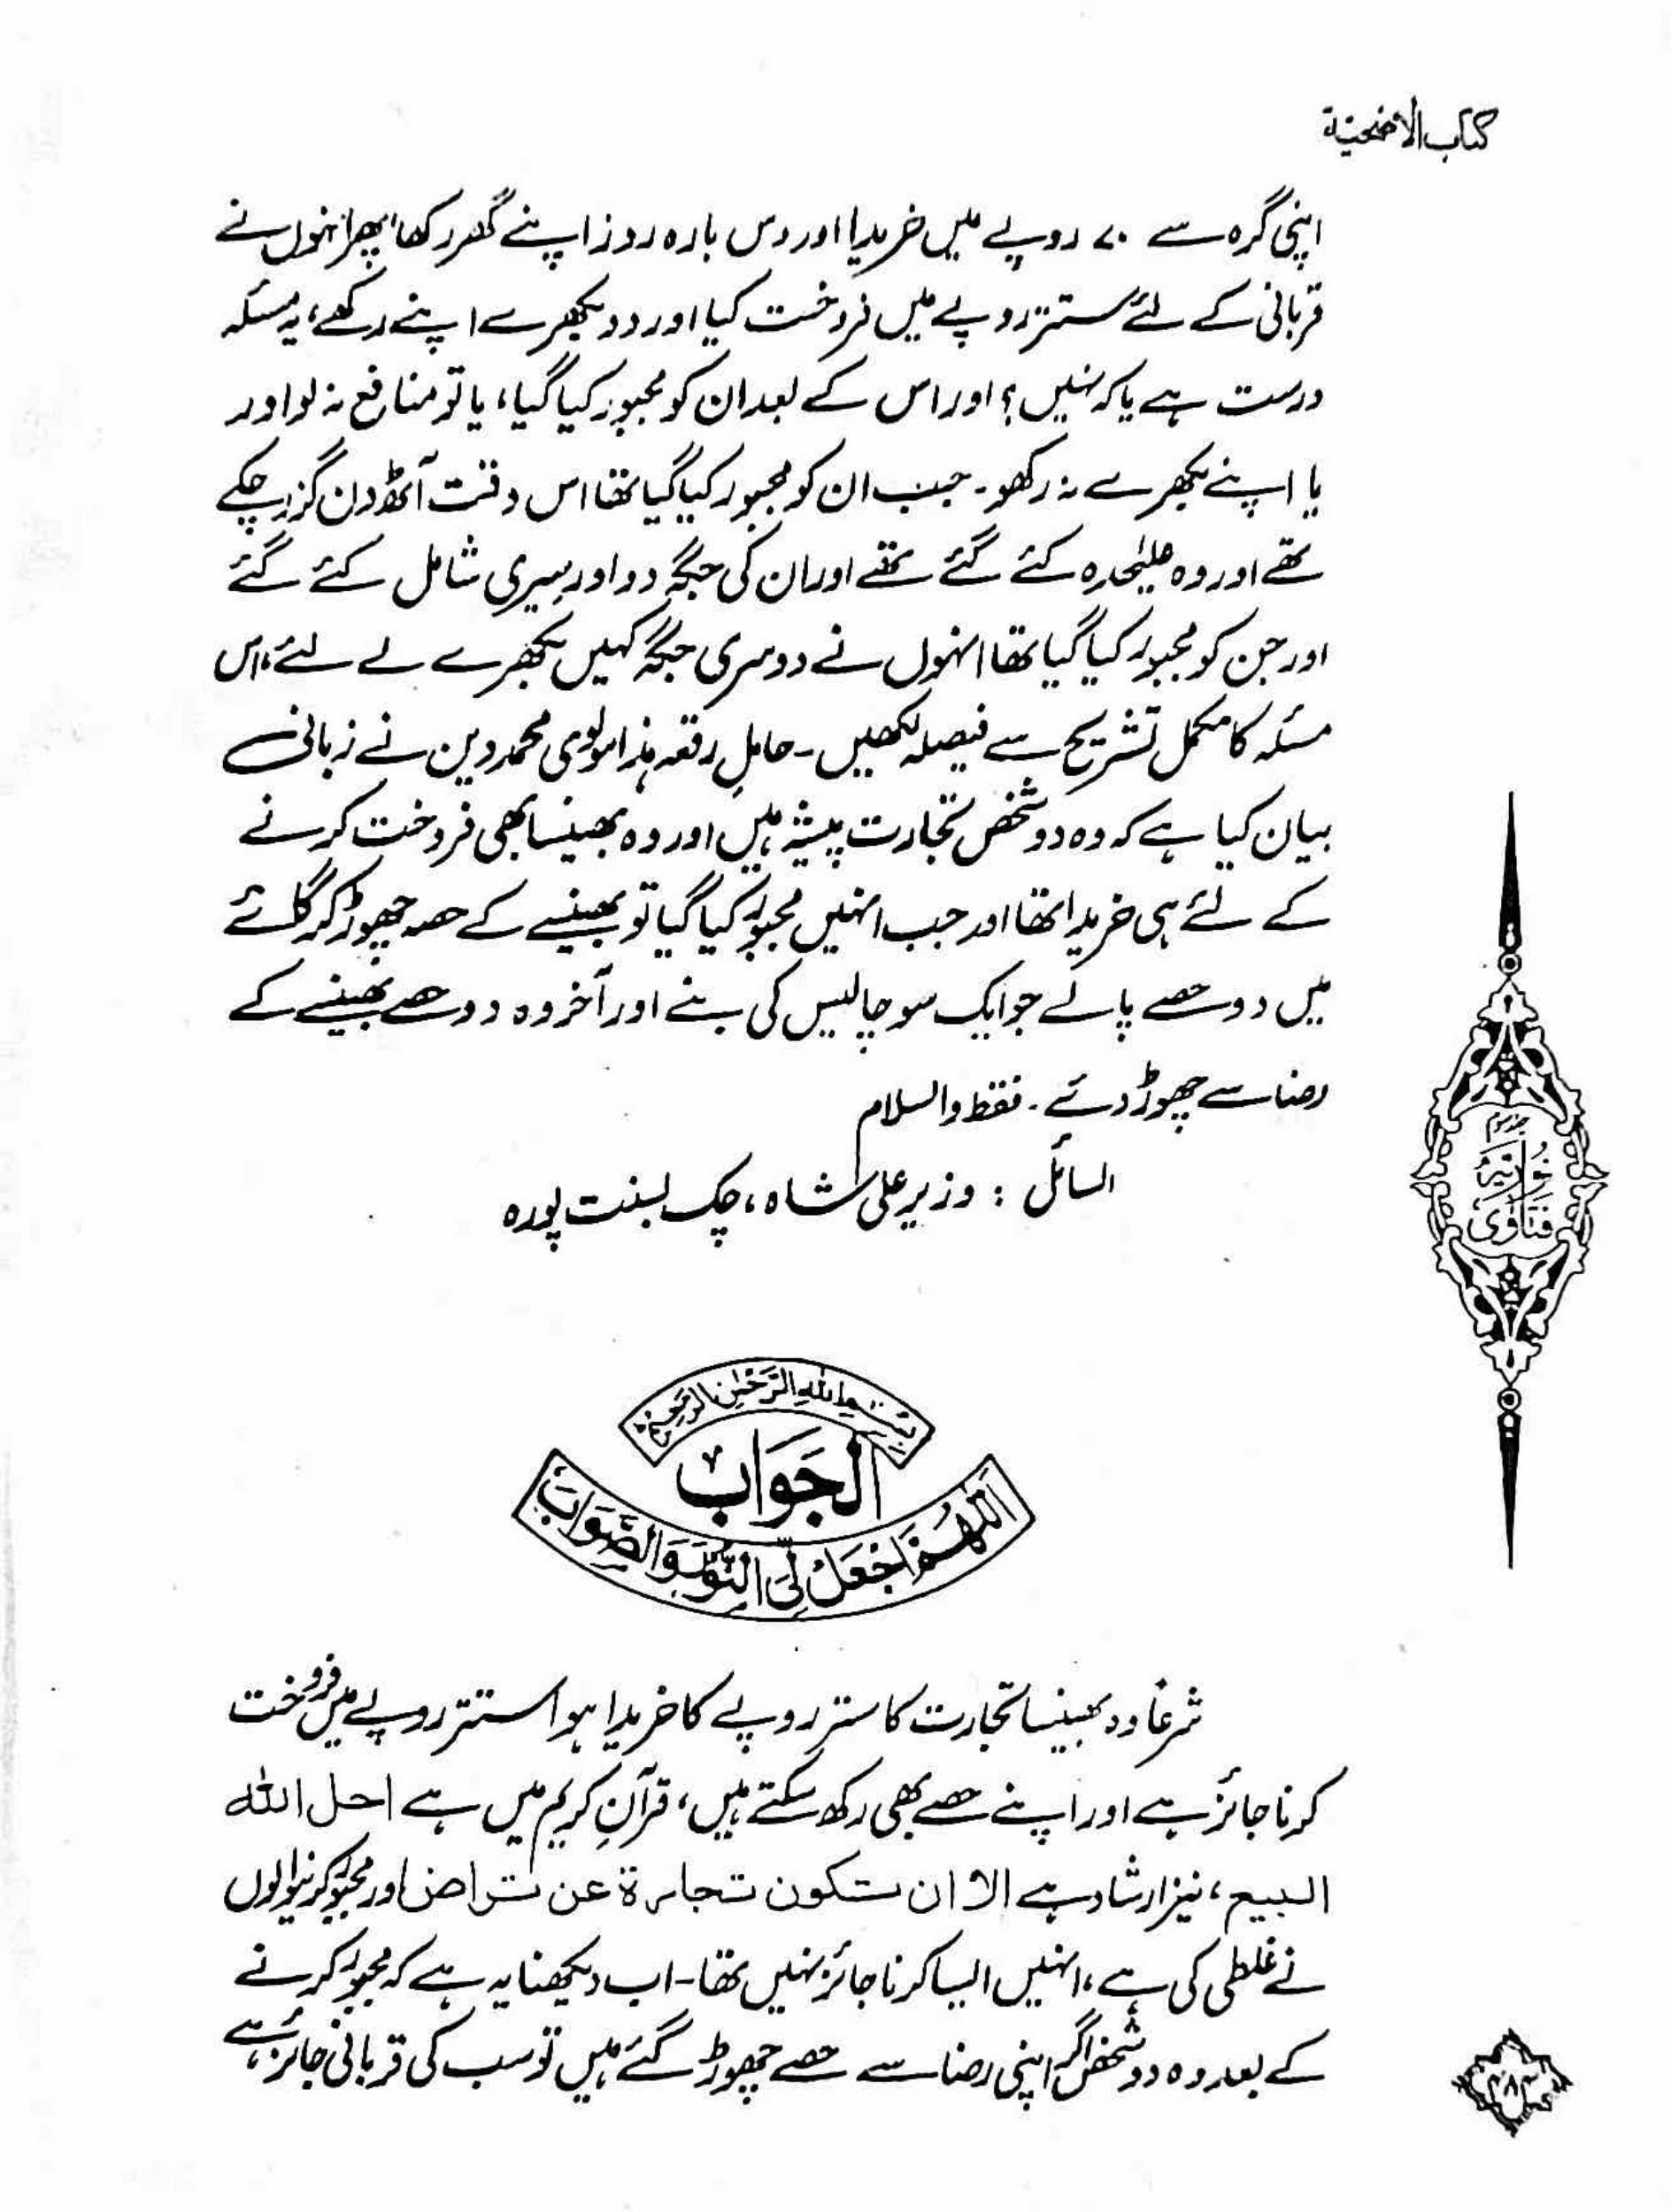 کتاب الاضحیۃ
اپنی گرہ سے ۷۰ روپے میں خریدا اور دس بارہ روز اپنے گھر رکھا، پھر انہوں نے
قربانی کے لئے ستتر روپے میں فروخت کیا اور دو بکھرے اپنے رکھے، یہ مسئلہ
درست ہے یا کہ نہیں؟ اور اس کے بعد ان کو مجبور کیا گیا، یا تو منافع نہ لو اور
یا اپنے بکھرے نہ رکھو۔ جب ان کو مجبور کیا گیا تھا اس وقت آٹھ دن گزر چکے
تھے اور وہ علیٰحدہ کئے گئے تھے اور ان کی جگہ دو اور سیری شامل کئے گئے
اور جن کو مجبور کیا گیا تھا انہوں نے دوسری جگہ کہیں بکھرے لے لئے، اس
مسئلہ کا مکمل تشریح سے فیصلہ لکھیں۔ حاملِ رقعہ ہٰذا مولوی محمد دین نے زبانی
بیان کیا ہے کہ وہ دو شخص تجارت پیشہ ہیں اور وہ بھینسا بھی فروخت کرنے
کے لئے ہی خریدا تھا اور جب انہیں مجبور کیا گیا تو بھینسے کے حصہ چھوڑ کر گائے
میں دو حصے پا لے جو ایک سو چالیس کی بنے اور آخر وہ دو حصے بھینسے کے
رضا سے چھوڑ دئے۔ فقط والسلام
السائل : وزیر علی شاہ، چک بسنت پورہ
جلد سوم
نوریہ
فتاوی
بسم اللہ الرحمٰن الرحیم
الجَوَاب
اَللّٰھُمَّ اجْعَلْ لِّیَ النُّوْرَ وَالصَّوَابَ
شرعاً وہ بھینسا تجارت کا ستر روپے کا خریدا ہوا ستتر روپے میں فروخت
کرنا جائز ہے اور اپنے حصے بھی رکھ سکتے ہیں، قرآنِ کریم میں ہے احل اللہ
البیع، نیز ارشاد ہے الا ان تکون تجارة عن تراض اور مجبور کرنیوالوں
نے غلطی کی ہے، انہیں ایسا کرنا جائز نہیں تھا۔ اب دیکھنا یہ ہے کہ مجبور کرنے
کے بعد وہ دو شخص اگر اپنی رضا سے حصے چھوڑ گئے ہیں تو سب کی قربانی جائز ہے،